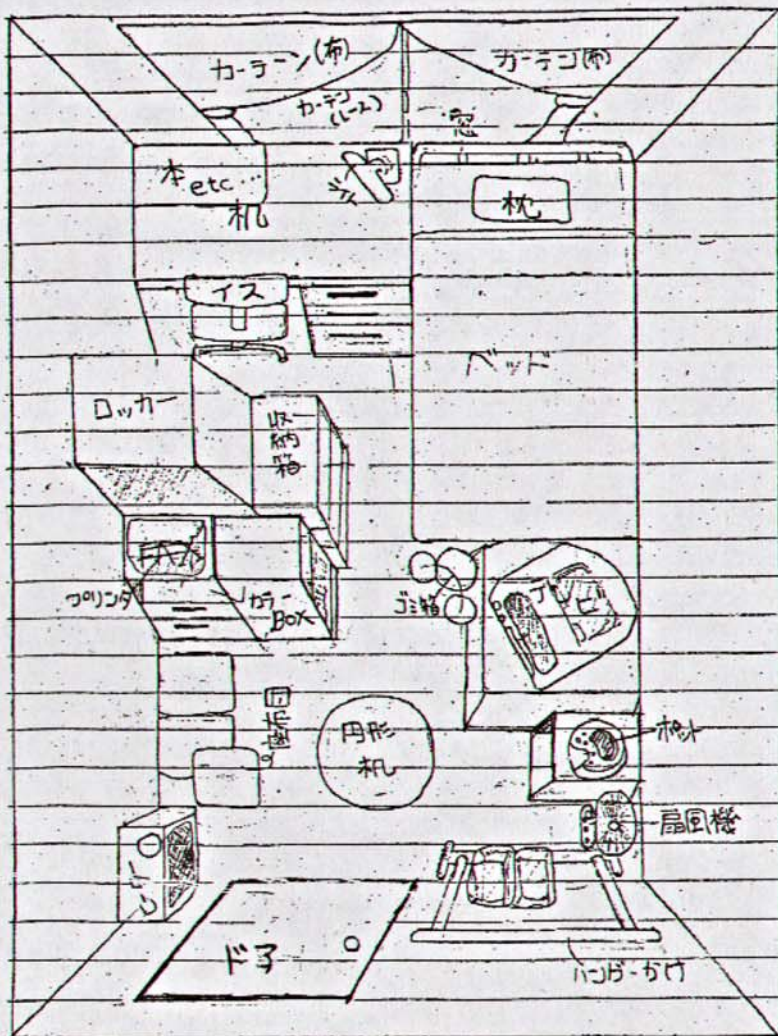 カーテーン(布)
カーテン(布)
カーテン
(レース)
窓
本
etc
机
枕
イス
ベッド
ロッカー
収納箱
FAX
プリンタ
カラー
BOX
ゴミ箱
テレビ
円形
机
ポット
扇風機
ドア
ハンガーかけ